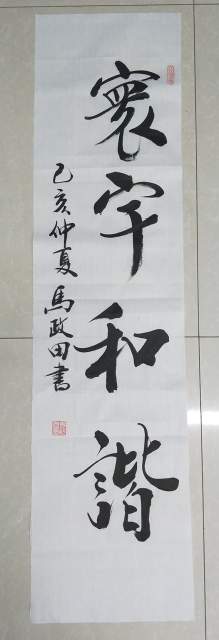 寰宇和諧
己亥仲夏 馬政田書